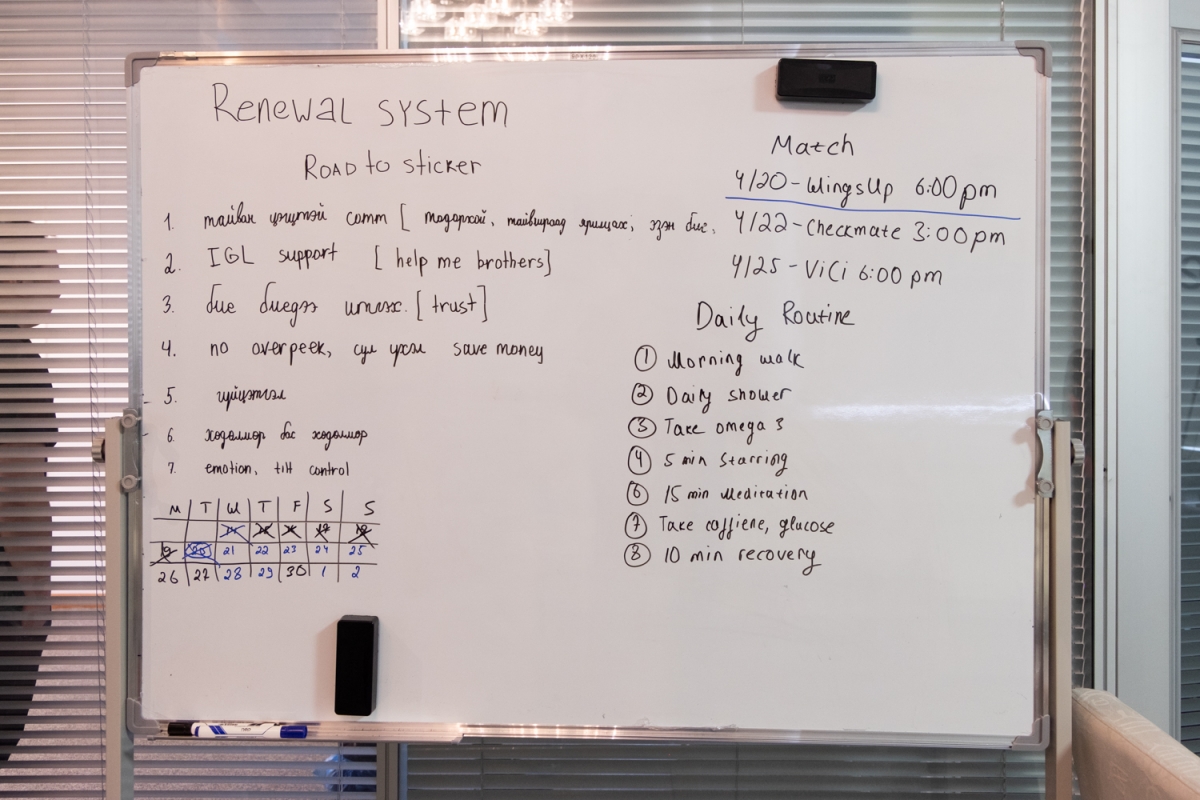 Renewal system
Road to sticker
1. тайван үнэтэй comm [ тодорхой, тайвширaад ярилцах, эзэн бие,
2. IGL support [help me brothers]
3. бие биедээ итгэх. [trust]
4. no overpeek, сул үхэл save money
5. гүйцэтгэл
6. хөдөлмөр бас хөдөлмөр
7. emotion, tilt control
M T W T F S S
19 20 21 22 23 24 25
26 27 28 29 30 1 2
Match
4/20-WingsUp 6:00pm
4/22-Checkmate 3:00pm
4/25-ViCi 6:00 pm
Daily Routine
1 Morning walk
2 Daily shower
3 Take omega 3
4 5 min Starring
6 15 min Meditation
7 Take caffiene, glucose
8 10 min recovery